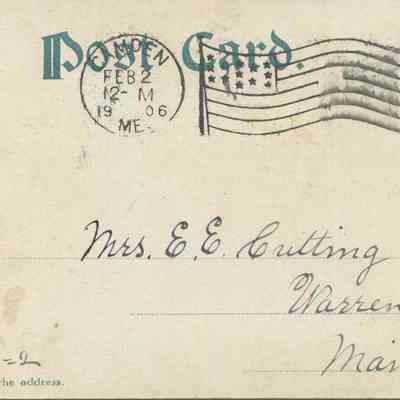 Post Card.
CAMDEN
FEB 2
12- M
19 06
ME.
Mrs. E. E. Cutting
Warren
Mai
-2
the address.